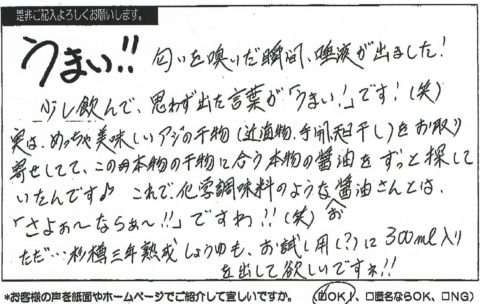 是非ご記入よろしくお願いします。
うまい!! 匂いを嗅いだ瞬間、唾液が出ました!
少し飲んで、思わず出た言葉が「うまい!」です!(笑)
実は、めっちゃ美味しいアジの干物(近海物、手開、天日干し)をお取り
寄せしてて、この本物の干物に合う本物の醤油をずっと探して
いたんです♪ これで、化学調味料のような醤油さんとは、
「さよぉ〜ならぁ〜!!」ですわ!!(笑) お
ただ…杉樽三年熟成しょうゆも、お試し用(?)に300ml入り
を出して欲しいですネ!!
*お客様の声を紙面やホームページでご紹介して宜しいですか。 (☑OK)、□匿名ならOK、□NG)